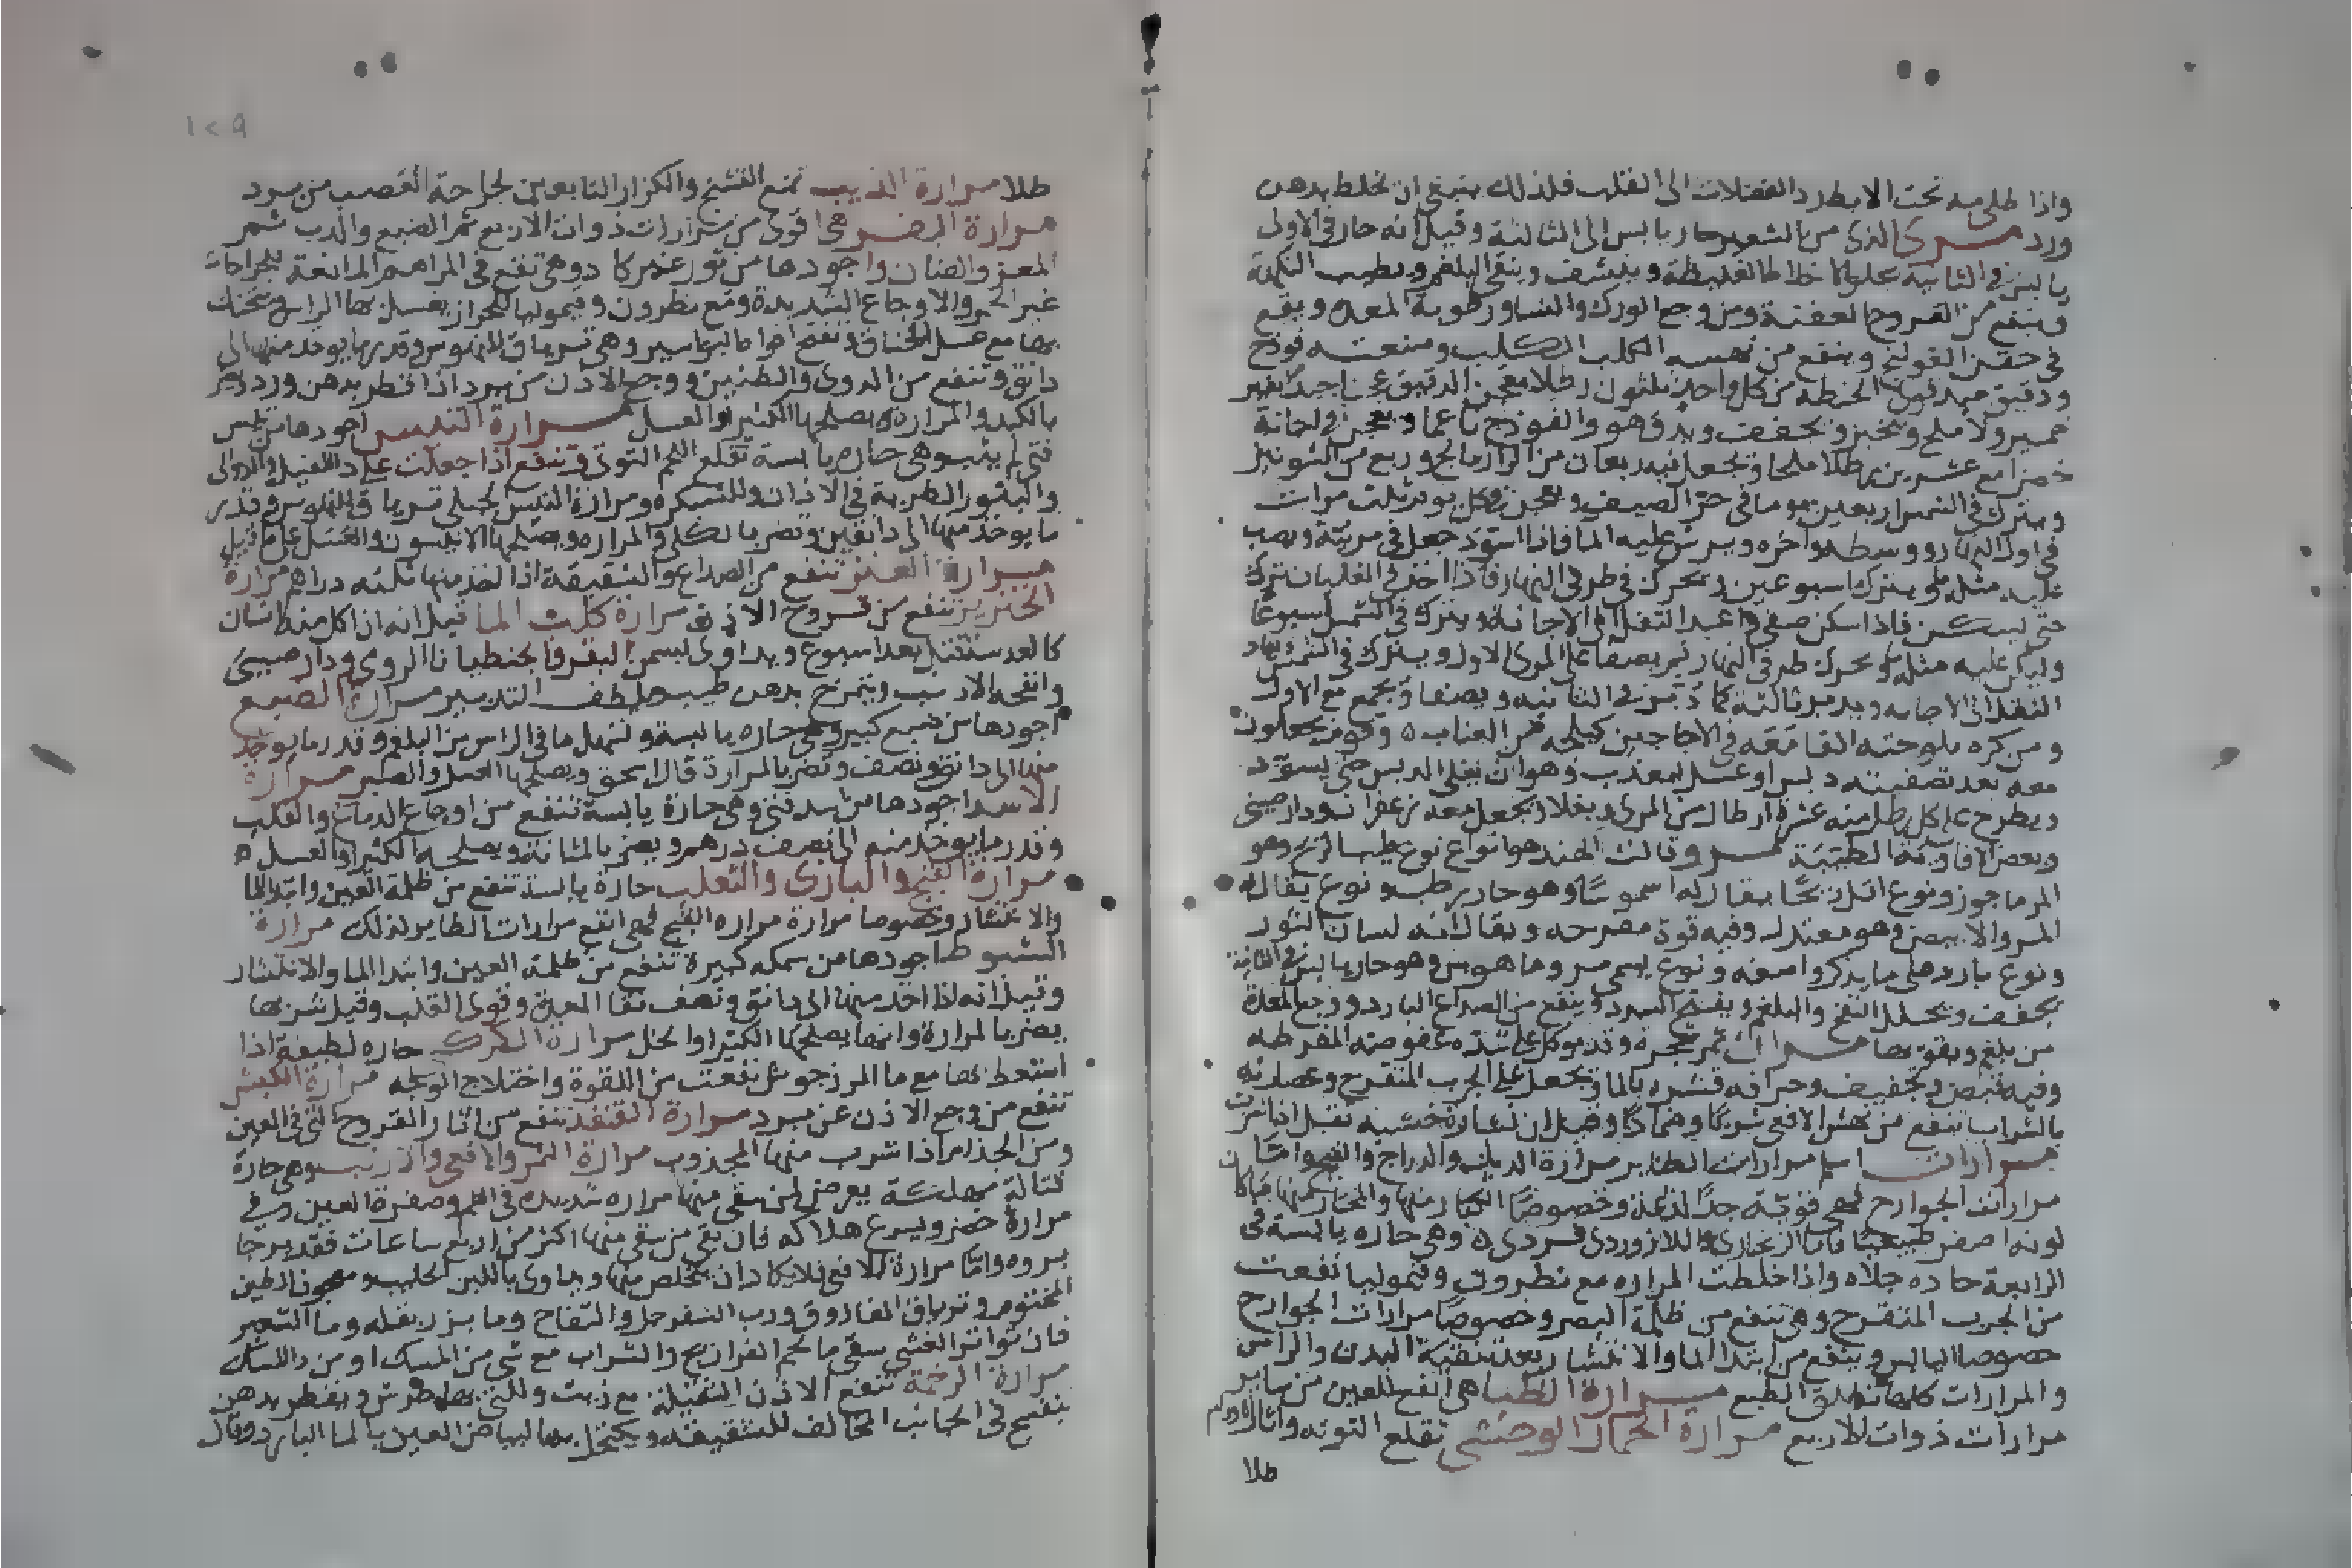 واذا طلى به تحت الابط رد الفضلات الى القلب فلذلك ينبغى ان يخلط بدهن
ورد مرى الذى من الشعير حار يابس الى الثالثة وقيل انه حار فى الاولى
يابس فى الثانية يجلو الاخلاط الغليظة وينشف وينقى البلغم ويطيب النكهة
وينفع من القروح العفنة ومن وجع الورك والنسا ورطوبة المعده ويقع
فى حقن القولنج وينفع من نهسه الكلب الكلب وصنعته فوذج
ودقيق الحنطه من كل واحد ثلثون رطلا يعجن الدقيق عجنا جيدا بغير
خمير ولا ملح ويخبز ويجفف ويدق هو والفوذج ناعما ويعجن فى اجانة
خضرا مع عشرين رطلا ملحا ويجعل فيه ربعان من الرازيانج وربع من الشونيز
ويترك فى الشمس اربعين يوما فى حر الصيف ويعجن كل يوم ثلث مرات
فى اول النهار ووسطه واخره ويرش عليه الما فاذا اسود جعل فى
عليه مثله ما ويترك اسبوعين ويحرك فى طرفى النهار فاذا اخذ فى الغليان ترك
حتى يسكن فاذا سكن صفى واعيد الثفل الى الاجانة ويترك فى الشمس اسبوعا
عليه مثله ما ويحرك طرفى النهار ثم يصفا على المرى الاول ويترك فى الشمس ويعاد
الثفل الى الاجانه ويدبر ثالثة كما دبر فى الثانيه ويصفا ويجمع مع الاول
ومن كره ملوحته فى الاجاجين كيلجه من العناب وقوم يجعلون
معه بعد تصفيته دبس او عسل وهو ان يغلى الدبس حتى يسود
ويطرح على كل رطل منه عشرة ارطال من المرى ويغلا ويجعل معه زعفران ودارصينى
وبعض الافاويه الطيبة مرو قالت الهند هو انواع نوع طيب الريح وهو
المرماجوز ونوع اقل ريحا يقال له وهو حار رطب ونوع يقال له
المرو الابيض وهو معتدل وفيه قوة مفرحه ويقال انه لسان الثور
ونوع بارد على ما يذكر واصفه ونوع يسمى مروماهوس وهو حار يابس فى الثانية
يجفف ويحلل النفخ والبلغم ويفتح السدد وينفع من الصداع البارد ووجع المعدة
من بلغم ويقويها مران ثمر شجرة وقد يوكل على شدة عفوصته المفرطه
وفيه قبض وتجفيف وحرافه قشره بالما ويجعل على الجرب المتقرح وعصارته
بالشراب تنفع من نهش الافعى شربا وضمادا وقيل ان نشارة خشبه تقتل اذا شربت
مرارات اسلم مرارات الطير مرارة الديك والدراج والقبج واما
مرارات الجوارح فهى قوية جدا لذاعة وخصوصا الكبار منها والمختار منها ما كان
لونه اصفر طبيعيا فاما الزنجارى واللازوردى فردى وهى حاره يابسة فى
الرابعة حاده جلاه واذا خلطت المراره مع نطرون وقيموليا نفعت
من الجرب المتقرح وهى تنفع من ظلمة البصر وخصوصا مرارات الجوارح
خصوصا اليابس وينفع من ابتدا الما والانتشار بعد تنقية البدن والراس
والمرارات كلها تطلق الطبع مرارة الظبا هى انفع للعين من ساير
مرارات ذوات الاربع مرارة الحمار الوحشى تقلع التوته واثاره
طلا
١٢٩
طلا مرارة الذيب تمنع التشنج والكزاز التابعين لجراحة العصب من برد
مرارة البقر هى اقوى من مرارات ذوات الاربع ثم الضبع والدب ثم
المعز والضان واجودها من ثور وهى تقع فى المراهم المانعة للجراحات
الحمر والاوجاع الشديدة ومع نطرون وقيموليا للحزاز يغسل بها الراس ويتحنك
بها مع عسل للخناق وتفتح افواه البواسير وهى ترياق للنهوس وقدر ما يوخذ منها الى
دانق وتنفع من الدوى والطنين ووجع الاذن من برد اذا قطر بدهن ورد وتضر
بالكبد والمرارة ويصلحها الكثيرا والعسل مرارة التيس اجودها من تيس
فتى وهى حارة يابسة تقلع اللحم التوتى وتنفع اذا جعلت على داء الفيل والدوالى
والبثور الطرية فى الاذان وللشبكره ومرارة التيس الجبلى ترياق للنهوس وقدر
ما يوخذ منها الى دانقين وتضر بالكلى والمراره ويصلحها الانيسون والعسل على ما قيل
مرارة العنز تنفع من الصداع والشقيقة اذا اخذ منها ثلثه دراهم مرارة
الخنزير تنفع من قروح الاذن مرارة كلب الما قيل انه اذا اكل منها انسان
كالعدسة قتل بعد اسبوع ويداوى بسمن البقر والجنطيانا الرومى ودارصينى
وانفحه الارنب ويتمرخ بدهن طيب ويلطف التدبير مرارة الضبع
اجودها من ضبع كبير وهى حاره يابسة وتسهل ما فى الراس من البلغم وقدر ما يوخذ
منها الى دانق ونصف وتضر بالمرارة قال اسحق ويصلحها العسل والصبر مرارة
الاسد اجودها من اسد فتى وهى حارة يابسة تنفع من اوجاع الدماغ والقلب
وقدر ما يوخذ منه الى نصف درهم ويضر بالمثانة ويصلحه الكثيرا والعسل
مرارة القبج والبازى والثعلب حارة يابسة تنفع من ظلمة العين وابتدا الما
والانتشار وخصوصا مرارة القبج فهى انفع مرارات الطاير لذلك مرارة
الشبوط اجودها من سمكه كبيرة تنفع من ظلمة العين وابتدا الما والانتشار
وقيل انه اذا اخذ منها الى دانق ونصف نقا المعدة وقوى القلب وقيل شربها
يضر بالمرارة وانها يصلحها الكثيرا والخل مرارة الكركى حاره لطيفة اذا
استعط بها مع ما المرزجوش نفعت من اللقوة واختلاج الوجه مرارة الكبش
تنفع من وجع الاذن عن برد مرارة القنفذ تنفع من اثار القروح التى فى العين
ومن الجذام اذا شرب منها المجذوب مرارة النمر والافعى والارنب وهى حارة
قتالة مهلكة يعرض لمن سقى منها مراره شديدة فى الفم وصفرة العين وفى
مرارة ويسرع هلاكه فان بقى من سقى منها اكثر من اربع ساعات فقد يرجا
بروه واما مرارة الافعى فلا يكاد ان يتخلص منها ويداوى باللبن الحليب ومعجون الطين
المختوم وترياق الفاروق ورب السفرجل والتفاح وما بزر بقله وما الشعير
فان تواتر الغشى سقى ما لحم الفراريج والشراب مع شى من المسك او من دوا المسك
مرارة الرخمة تنفع الاذن الثقيلة مع زيت وللتى بها طرش ويقطر بدهن
بنفسج فى الجانب المخالف للشقيقه ويكتحل بها لبياض العين بالما البارد وقال